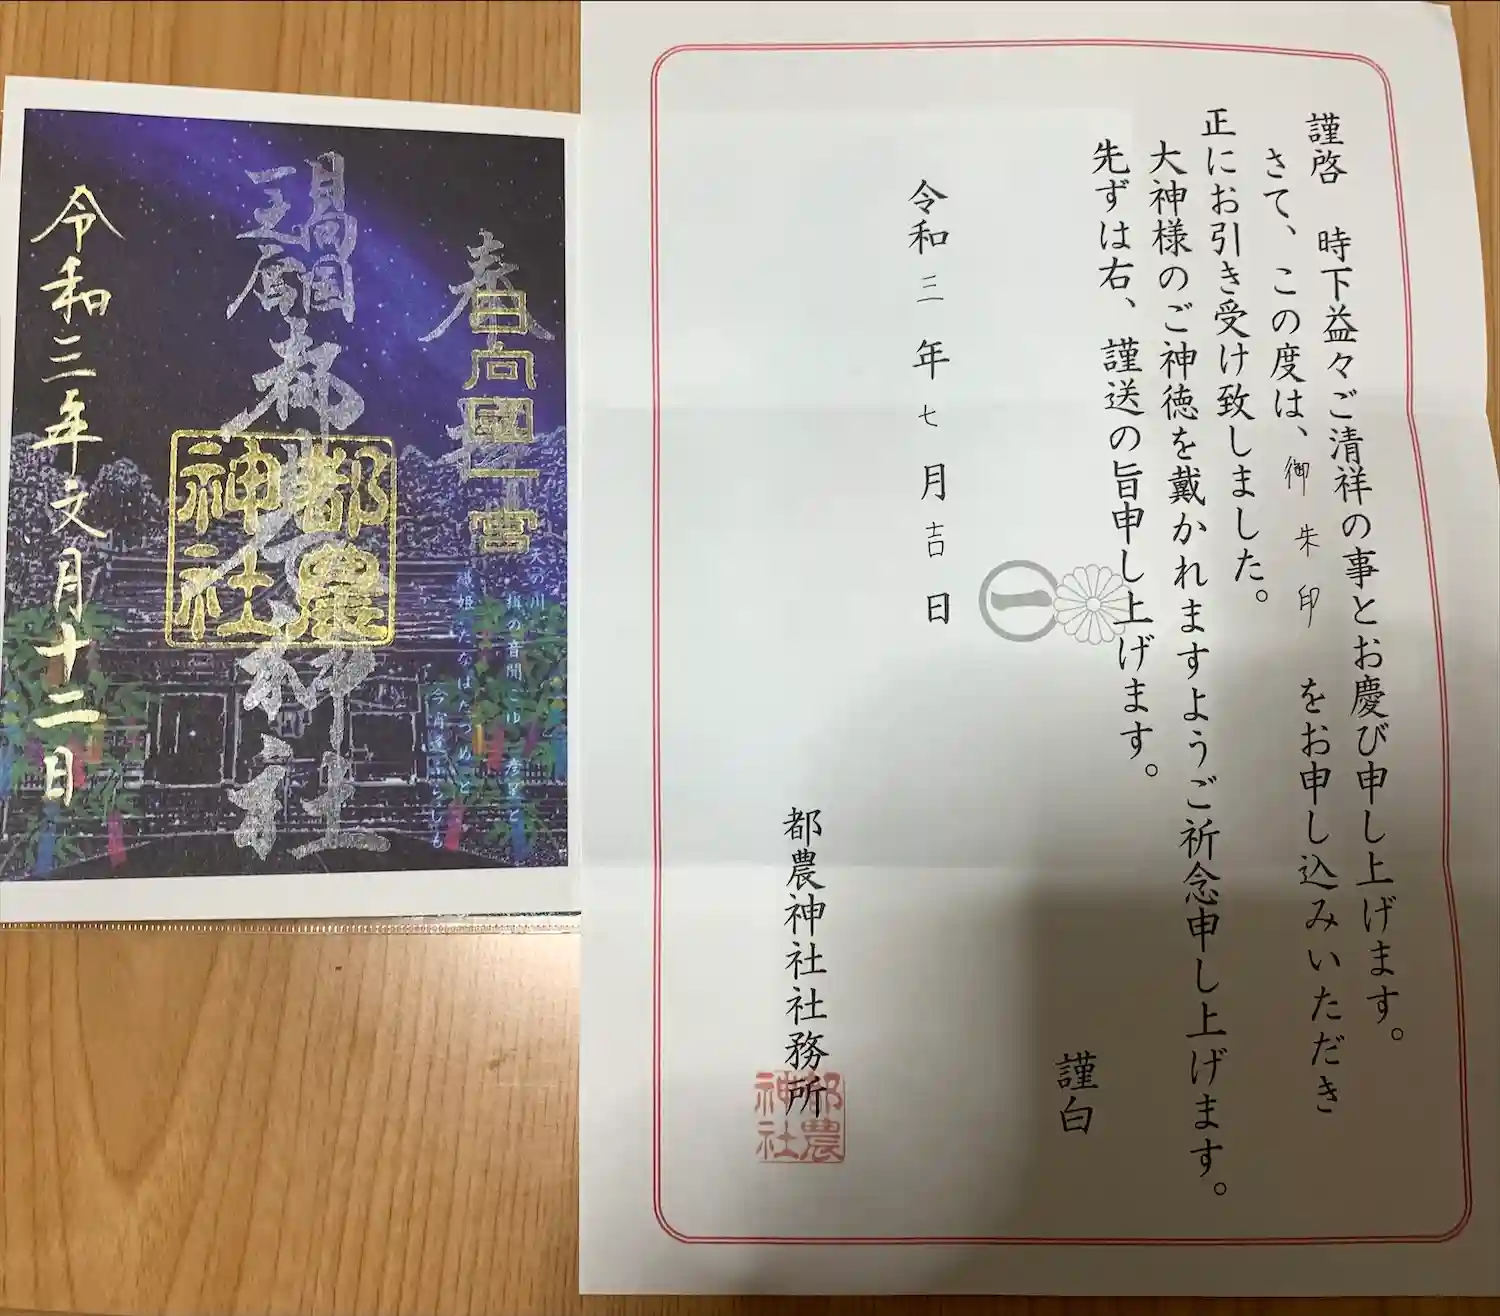 謹啓 時下益々ご清祥の事とお慶び申し上げます。
さて、この度は、御朱印をお申し込みいただき
正にお引き受け致しました。
大神様のご神徳を戴かれますようご祈念申し上げます。
先ずは右、謹送の旨申し上げます。
謹白
一
令和三年七月吉日
都農神社社務所
都農神社
奉拝
日向國一宮
天の川
楫の音聞こゆ 彦星と
織姫たなばたつめと
今宵逢ふらしも
都農神社
都農神社
令和三年文月十二日